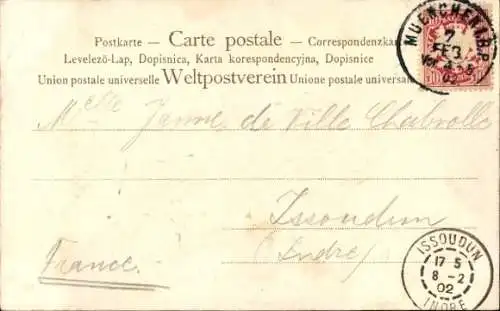 Postkarte — Carte postale — Correspondenzkar
Levelező-Lap, Dopisnica, Karta korespondencyjna, Dopisnice
Union postale universelle Weltpostverein Unione postale universa
MUENCHEN B.P.
7
FEB
02
10
Mlle Janne de Ville Chabrolle
Issoudun
(Indre)
France.
ISSOUDUN
17 5
8 - 2
02
INDRE